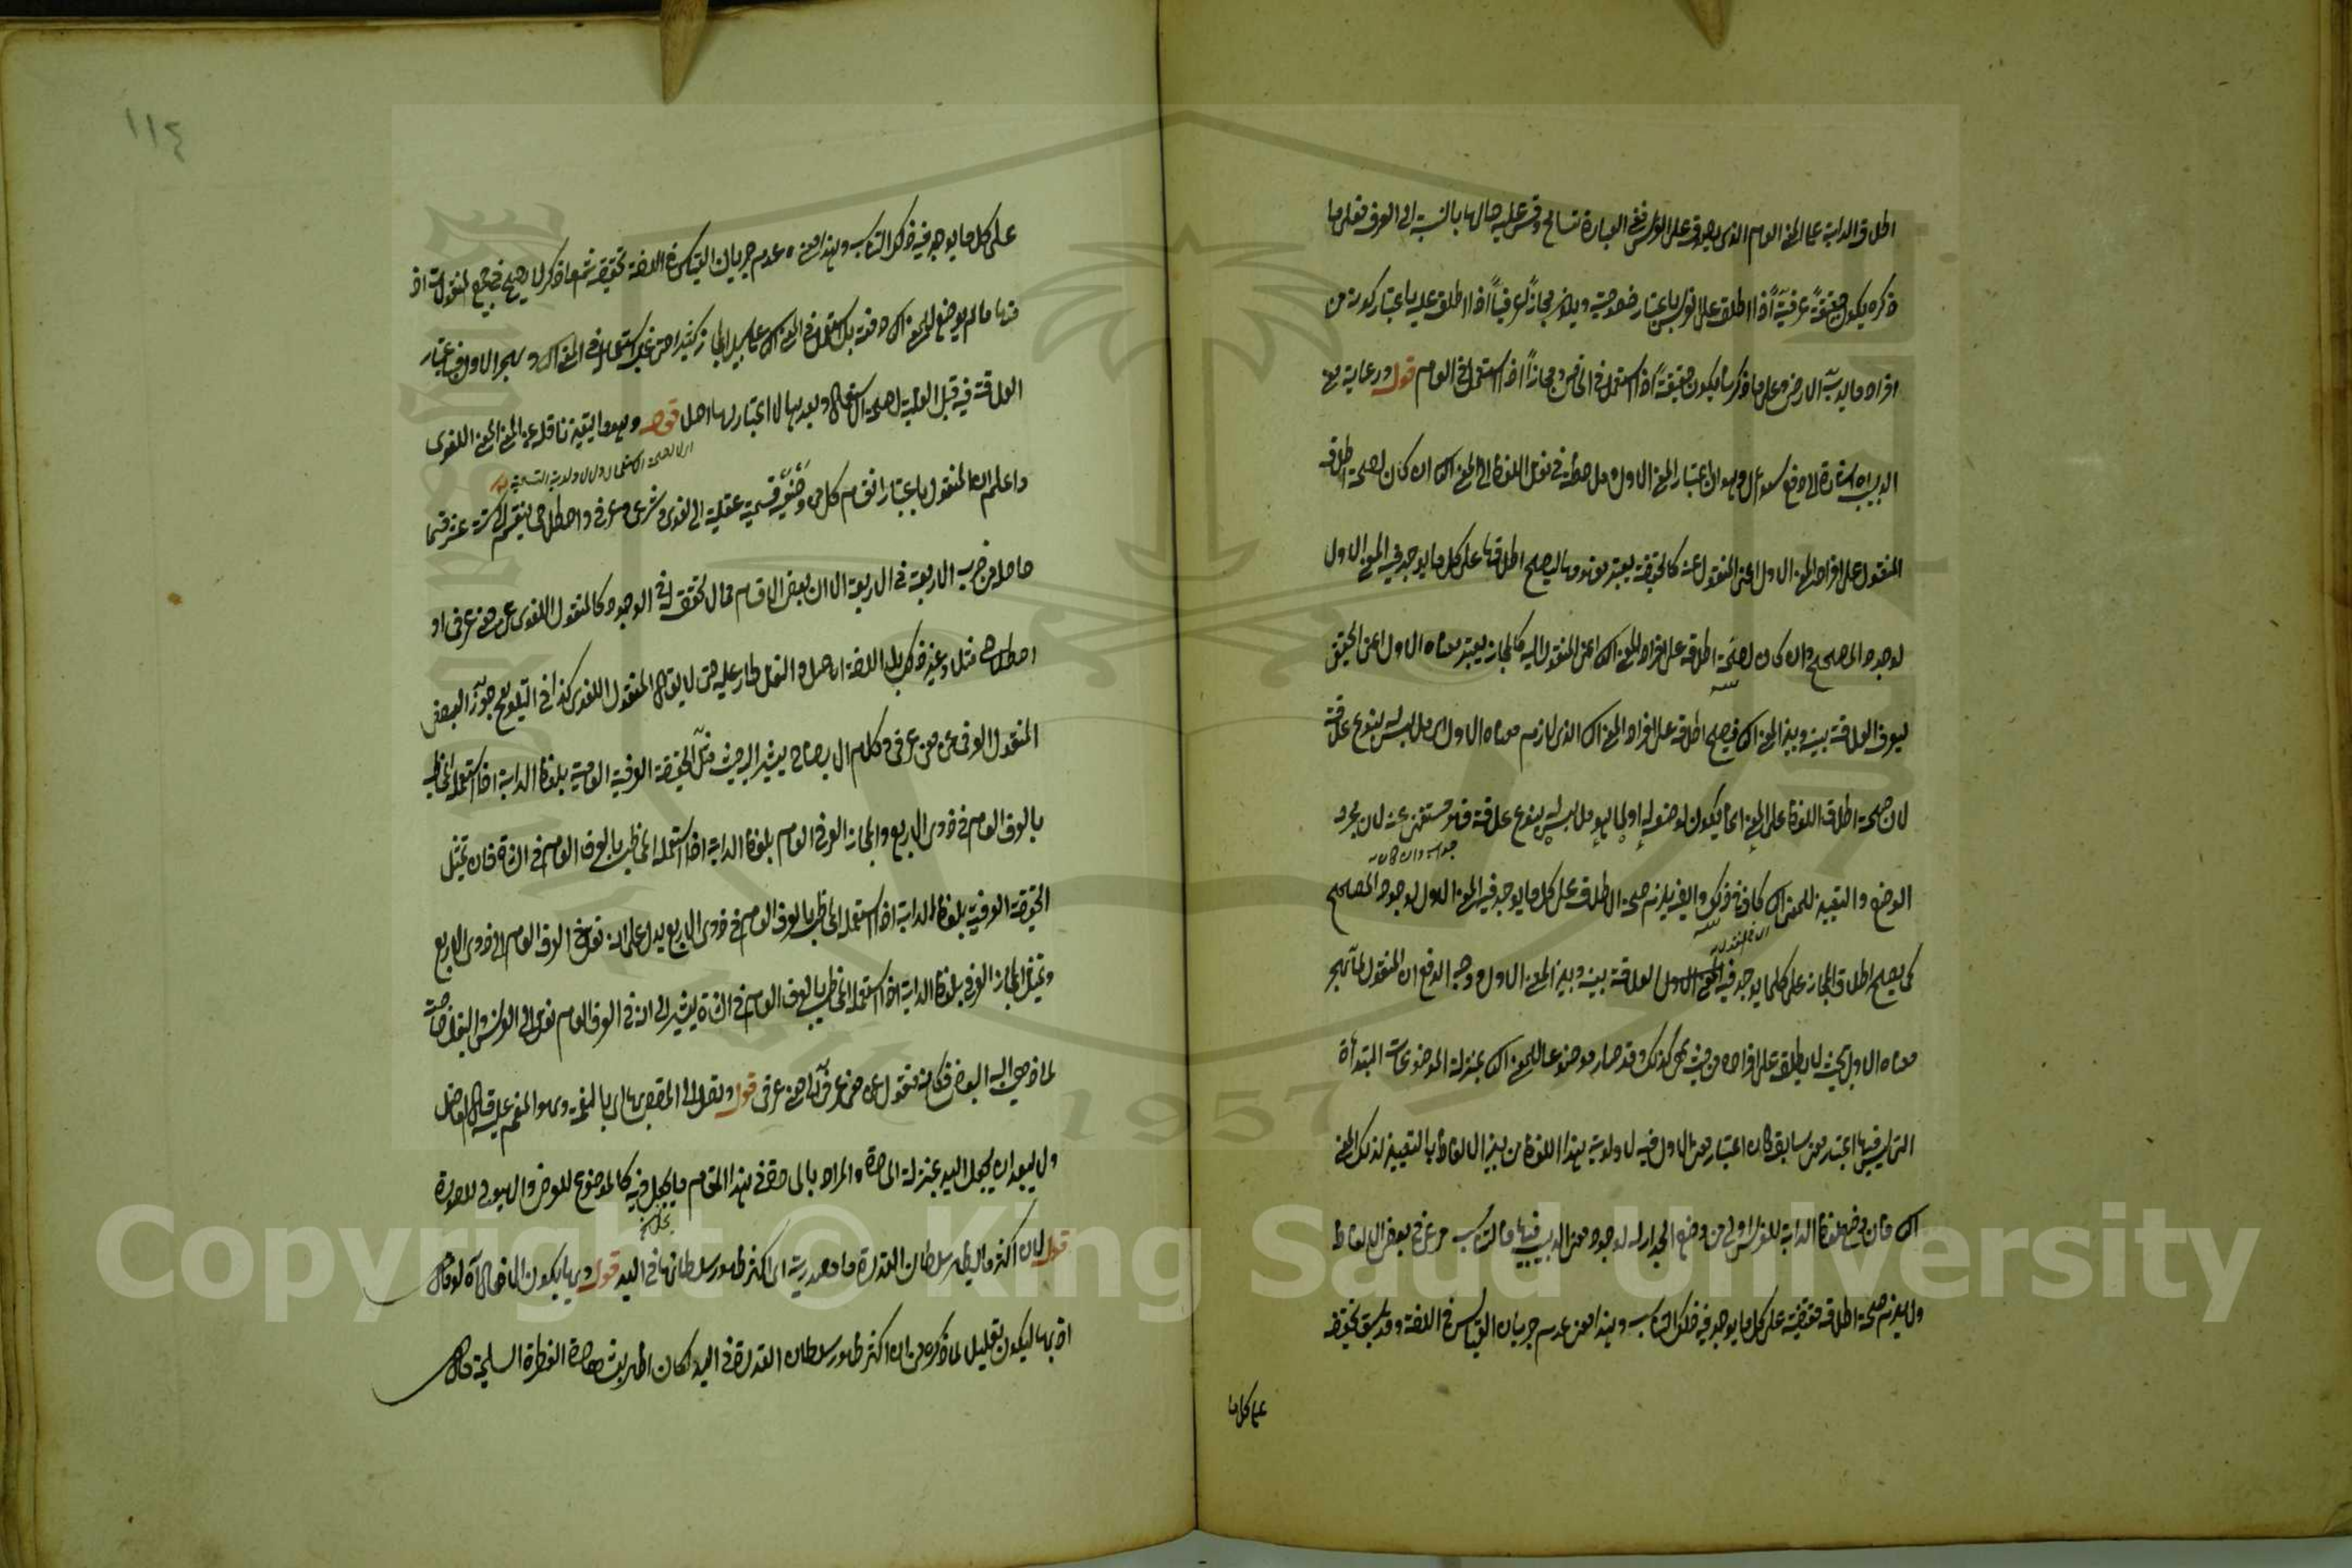 اطلاق الدابة على المعنى العام الذي يصدق على الفرس ففي العبارة تسامح وقس عليه حالها بالنسبة الى العرف فعلى ما
ذكره يكون حقيقة عرفية اذا اطلق على الفرس باعتبار خصوصيته ويكون مجازاً عرفياً اذا اطلق عليه باعتبار كونه من
افراد ما يدب على الارض وعلى ما ذكر يكون حقيقةً اذا استعمل في الخاص ومجازاً اذا استعمل في العام قوله ورعاية معنى
الدبيب اشارة الى دفع سؤال وهو ان اعتبار المعنى الاول وملاحظته في نقل اللفظ الى المعنى الثاني ان كان لصحة اطلاق
المنقول على افراد المعنى الاول اعني المنقول عنه كالحقيقة يعتبر مفهومها ليصح اطلاقها على كل ما يوجد فيه المعنى الاول
لوجود المصحح وان كان لصحة اطلاقه على افراد المعنى الثاني اعني المنقول اليه كالمجاز يعتبر معناه الاول اعني الحقيقي
ليعرف العلاقة بينه وبين المعنى الثاني فيصح اطلاقه على افراد المعنى الثاني الذي لازم معناه الاول او ملابس له بنوع علاقة
لان صحة اطلاق اللفظ على المعنى انما يكون لوضعه له او لما هو ملابس له بنوع علاقة فهو مستغنى عنه لان مجرد
جواب وان كان
الوضع والتعيين للمعنى الثاني كاف في ذلك وايضا يلزم صحة الاطلاق على كل ما يوجد فيه المعنى الاول لوجود المصحح
كما يصح اطلاق المجاز على كل ما يوجد فيه المعنى الاول العلاقة بينه وبين المعنى الاول ووجه الدفع ان المنقول لما هجر
معناه الاول بحيث لا يطلق على افراده من حيث هي كذلك وقد صار موضوعا للمعنى الثاني بمنزلة الموضوعات المبتدأة
التي ليس فيها اعتبار معنى سابق كان اعتبار معنى الاول فيه لاولوية هذا اللفظ من بين الالفاظ بالتعيين لذلك المعنى
الثاني فان وضع لفظ الدابة للفرس اولى من وضع الجدار له لوجود معنى الدبيب فيها فالتناسب مرعي في بعض الالفاظ
ولا يلزم صحة اطلاقه حقيقة على كل ما يوجد فيه ذلك التناسب وهذا معنى عدم جريان القياس في اللغة وقد سبق تحقيقه
على كل ما
١١٤
على كل ما يوجد فيه ذكر التناسب وهذا معنى عدم جريان القياس في اللغة تحقيقه ثم ما ذكر لا يصح في جميع المنقولات اذ
منها ما لم يوضع للمعنى الثاني دفعة بل استعمل في المعنى الثاني على سبيل المجاز كثيرا حتى غلب استعماله في المعنى الثاني وهجر الاول فاعتبار
العلاقة فيه قبل الغلبة لصحة الاستعمال وبعدها لا اعتبار لها اصلا قوله وهو التعيين ناقله عن المعنى اللغوي
واعلم ان المنقول باعتبار انقسام كل من وضعيه قسمة عقلية الى لغوي وشرعي وعرفي واصطلاحي ينقسم الى ستة عشر قسما
حاصلة من ضرب الاربعة في الاربعة الا ان بعض الاقسام مما لا تحقق له في الوجود كالمنقول اللغوي عن معنى عرفي او
اصطلاحي مثلا وغير ذلك بل اللغة اصل والنقل طار عليه حتى لا يقال المنقول اللغوي كذا في التلويح جوّز البعض
المنقول العرفي عن معنى عرفي وكلام الايضاح يشير اليه حيث مثّل الحقيقة العرفية العامة بلفظ الدابة اذا استعمله المخاطب
بالعرف العام في ذوي الاربع والمجاز العرفي العام بلفظ الدابة اذا استعمله المخاطب بالعرف العام في الشاة فان تمثيل
الحقيقة العرفية بلفظ الدابة اذا استعمله المخاطب بالعرف العام في ذوي الاربع يدل على انه نقل في العرف العام الى ذوي الاربع
وتمثيل المجاز العرفي بلفظ الدابة اذا استعمله المخاطب بالعرف العام في الشاة يشير الى انه في العرف العام نقل الى الفرس والبغل خاصة
لما ذهب اليه البعض فكانه منقول عن معنى عرفي الى معنى عرفي قوله
ولا يبعد ان يجعل اليد بمنزلة المادة والمراد بالمادة في هذا المقام ما يحل فيه كالموضوع للعرض والهيولى للصورة
قوله لان اكثر ما يظهر سلطان القدرة ما مصدرية اى اكثر ظهور سلطانها في اليد قوله وبها يكون الافعال آه لو قال
اذ بها ليكون تعليلا لما ذكره من ان اكثر ظهور سلطان القدرة في اليد لكان اظهر بشهادة الفطرة السليمة قال